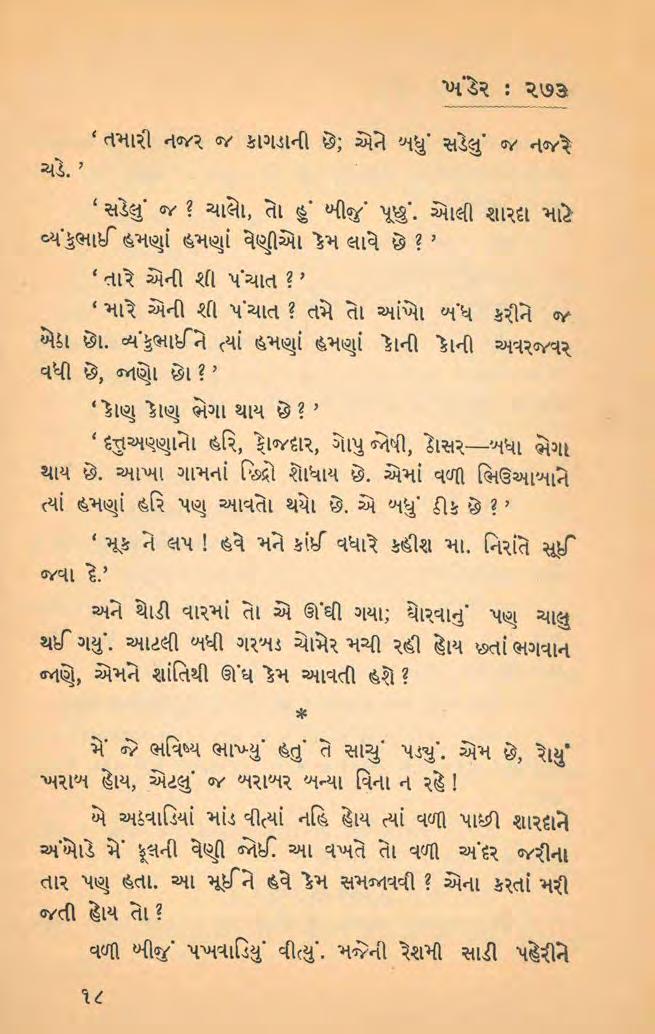 ખંડેર : ૨૭૩
‘ તમારી નજર જ કાગડાની છે; એને બધું સડેલું જ નજરે
ચડે. ’
‘ સડેલું જ ? ચાલો, તો હું બીજું પૂછું. ઓલી શારદા માટે
વ્યંકુભાઈ હમણાં હમણાં વેણીઓ કેમ લાવે છે ? ’
‘ તારે એની શી પંચાત ? ’
‘ મારે એની શી પંચાત ? તમે તો આંખો બંધ કરીને જ
બેઠા છો. વ્યંકુભાઈને ત્યાં હમણાં હમણાં કોની કોની અવરજવર
વધી છે, જાણો છો ? ’
‘ કોણ કોણ ભેગા થાય છે ? ’
‘ દત્તુઅણ્ણાનો હરિ, ફોજદાર, ગોપુ જોષી, ઠોસર—બધા ભેગા
થાય છે. આખા ગામનાં છિદ્રો શોધાય છે. એમાં વળી ભિઉઆબાને
ત્યાં હમણાં હરિ પણ આવતો થયો છે. એ બધું ઠીક છે ? ’
‘ મૂક ને લપ ! હવે મને કાંઈ વધારે કહીશ મા. નિરાંતે સૂઈ
જવા દે.’
અને થોડી વારમાં તો એ ઊંઘી ગયા; ઘોરવાનું પણ ચાલુ
થઈ ગયું. આટલી બધી ગરબડ ચોમેર મચી રહી હોય છતાં ભગવાન
જાણે, એમને શાંતિથી ઊંઘ કેમ આવતી હશે ?
*
મેં જે ભવિષ્ય ભાખ્યું હતું તે સાચું પડ્યું. એમ છે, રોયું
ખરાબ હોય, એટલું જ બરાબર બન્યા વિના ન રહે !
બે અઠવાડિયાં માંડ વીત્યાં નહિ હોય ત્યાં વળી પાછી શારદાને
અંબોડે મેં ફૂલની વેણી જોઈ. આ વખતે તો વળી અંદર જરીના
તાર પણ હતા. આ મૂઈને હવે કેમ સમજાવવી ? એના કરતાં મરી
જતી હોય તો ?
વળી બીજું પખવાડિયું વીત્યું. મજેની રેશમી સાડી પહેરીને
૧૮